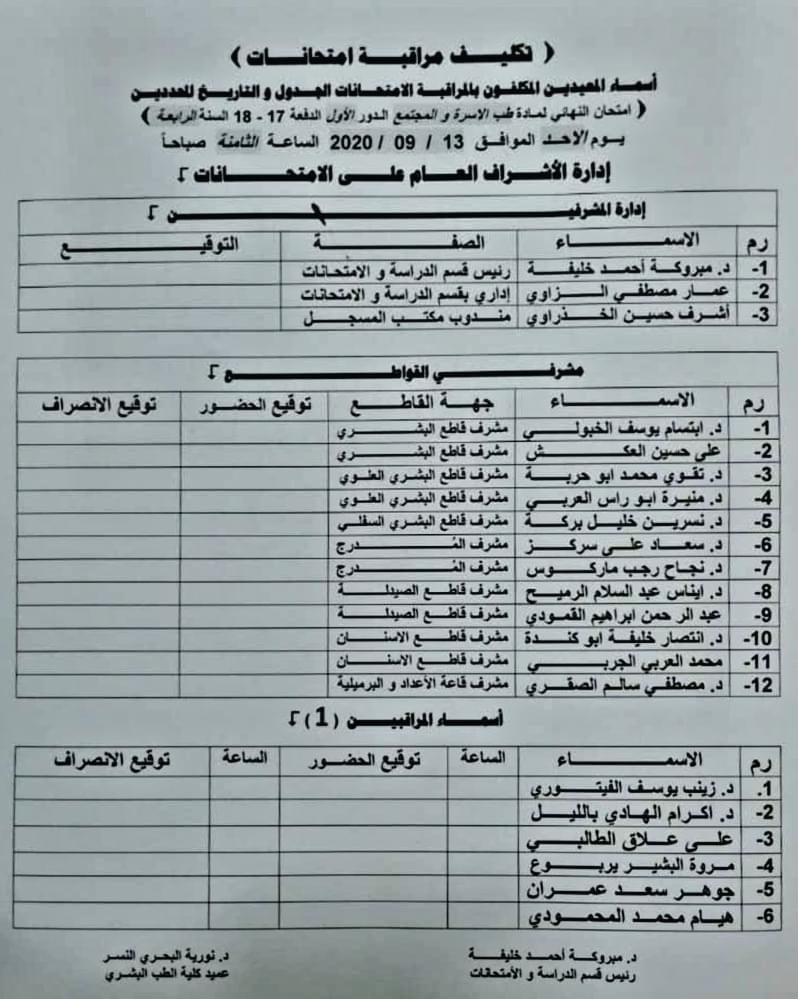 ( تكليف مراقبة امتحانات )
أسماء المعيدين المكلفون بالمراقبة الامتحانات الجدول و التاريخ المحددين
( امتحان النهائي لمادة طب الاسرة و المجتمع الدور الأول الدفعة 17 - 18 السنة الرابعة )
يوم الاحد الموافق 13 / 09 / 2020 الساعة الثامنة صباحاً
إدارة الأشراف العام على الامتحانات
إدارة المشرفين
رم الاسماء الصفة التوقيع
1- د. مبروكة أحمد خليفة رئيس قسم الدراسة و الامتحانات
2- عمار مصطفي الزاوي إداري بقسم الدراسة و الامتحانات
3- أشرف حسين الخذراوي مندوب مكتب المسجل
مشرفي القواطع
رم الاسماء جهة القاطع توقيع الحضور توقيع الانصراف
1- د. ابتسام يوسف الخبولي مشرف قاطع البشري
2- على حسين العكش مشرف قاطع البشري
3- د. تقوي محمد ابو حربة مشرف قاطع البشري العلوي
4- د. منيرة ابو راس العربي مشرف قاطع البشري العلوي
5- د. نسرين خليل بركة مشرف قاطع البشري السفلي
6- د. سعاد على سركز مشرف المُدرج
7- د. نجاح رجب ماركوس مشرف المُدرج
8- د. ايناس عبد السلام الرميح مشرف قاطع الصيدلة
9- عبد الر حمن ابراهيم القمودي مشرف قاطع الصيدلة
10- د. انتصار خليفة ابو كندة مشرف قاطع الاسنان
11- محمد العربي الجربي مشرف قاطع الاسنان
12- د. مصطفي سالم الصقري مشرف قاعة الأعداد و البرميلية
أسماء المراقبين (1)
رم الاسماء الساعة توقيع الحضور الساعة توقيع الانصراف
1. د. زينب يوسف الفيتوري
2- د. اكرام الهادي بالليل
3- على علاق الطالبي
4- مروة البشير يربوع
5- جوهر سعد عمران
6- هيام محمد المحمودي
د. مبروكة أحمد خليفة د. نورية البحري النسر
رئيس قسم الدراسة و الأمتحانات عميد كلية الطب البشري